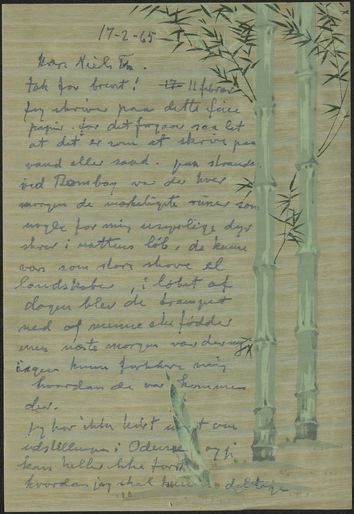 17-2-65
Kære Niels
tak for brevet! 11 februar
jeg skriver paa dette fine
papir for det saa let
at det er som at skrive paa
vand eller sand. paa stranden
ved Bombay var der hver
morgen de mærkeligste runer som
nogle for mig usynlige dyr
skrev i nattens løb, de kunne
være som store skove el
landskaber, i løbet af
dagen blev de trampet
ned af menneskefødder
men næste morgen var der nye
ingen kunne forklare mig
hvordan de var kommen
der.
Jeg har ikke hørt noget om
udstillingen i Odense og jeg
kan heller ikke
hvordan jeg skal deltage